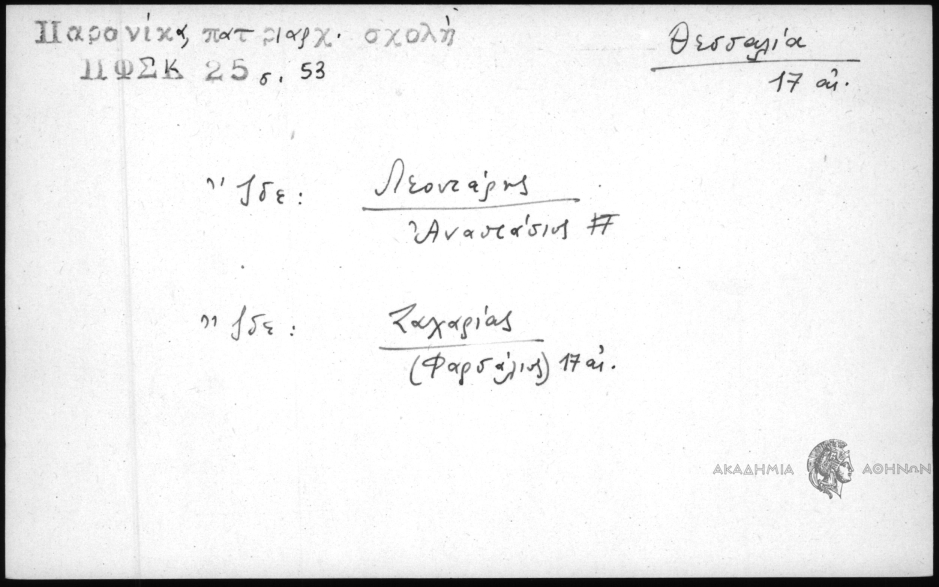 Παρανίκα, πατριαρχ. σχολή
ΠΦΣΚ 25 σ. 53
Θεσσαλία
17 αἰ.
Ἴδε: Λεοντάρης
Ἀναστάσιος #
Ἴδε: Ζαχαρίας
(Φαρσάλιος) 17 αἰ.
ΑΚΑΔΗΜΙΑ ΑΘΗΝΩΝ